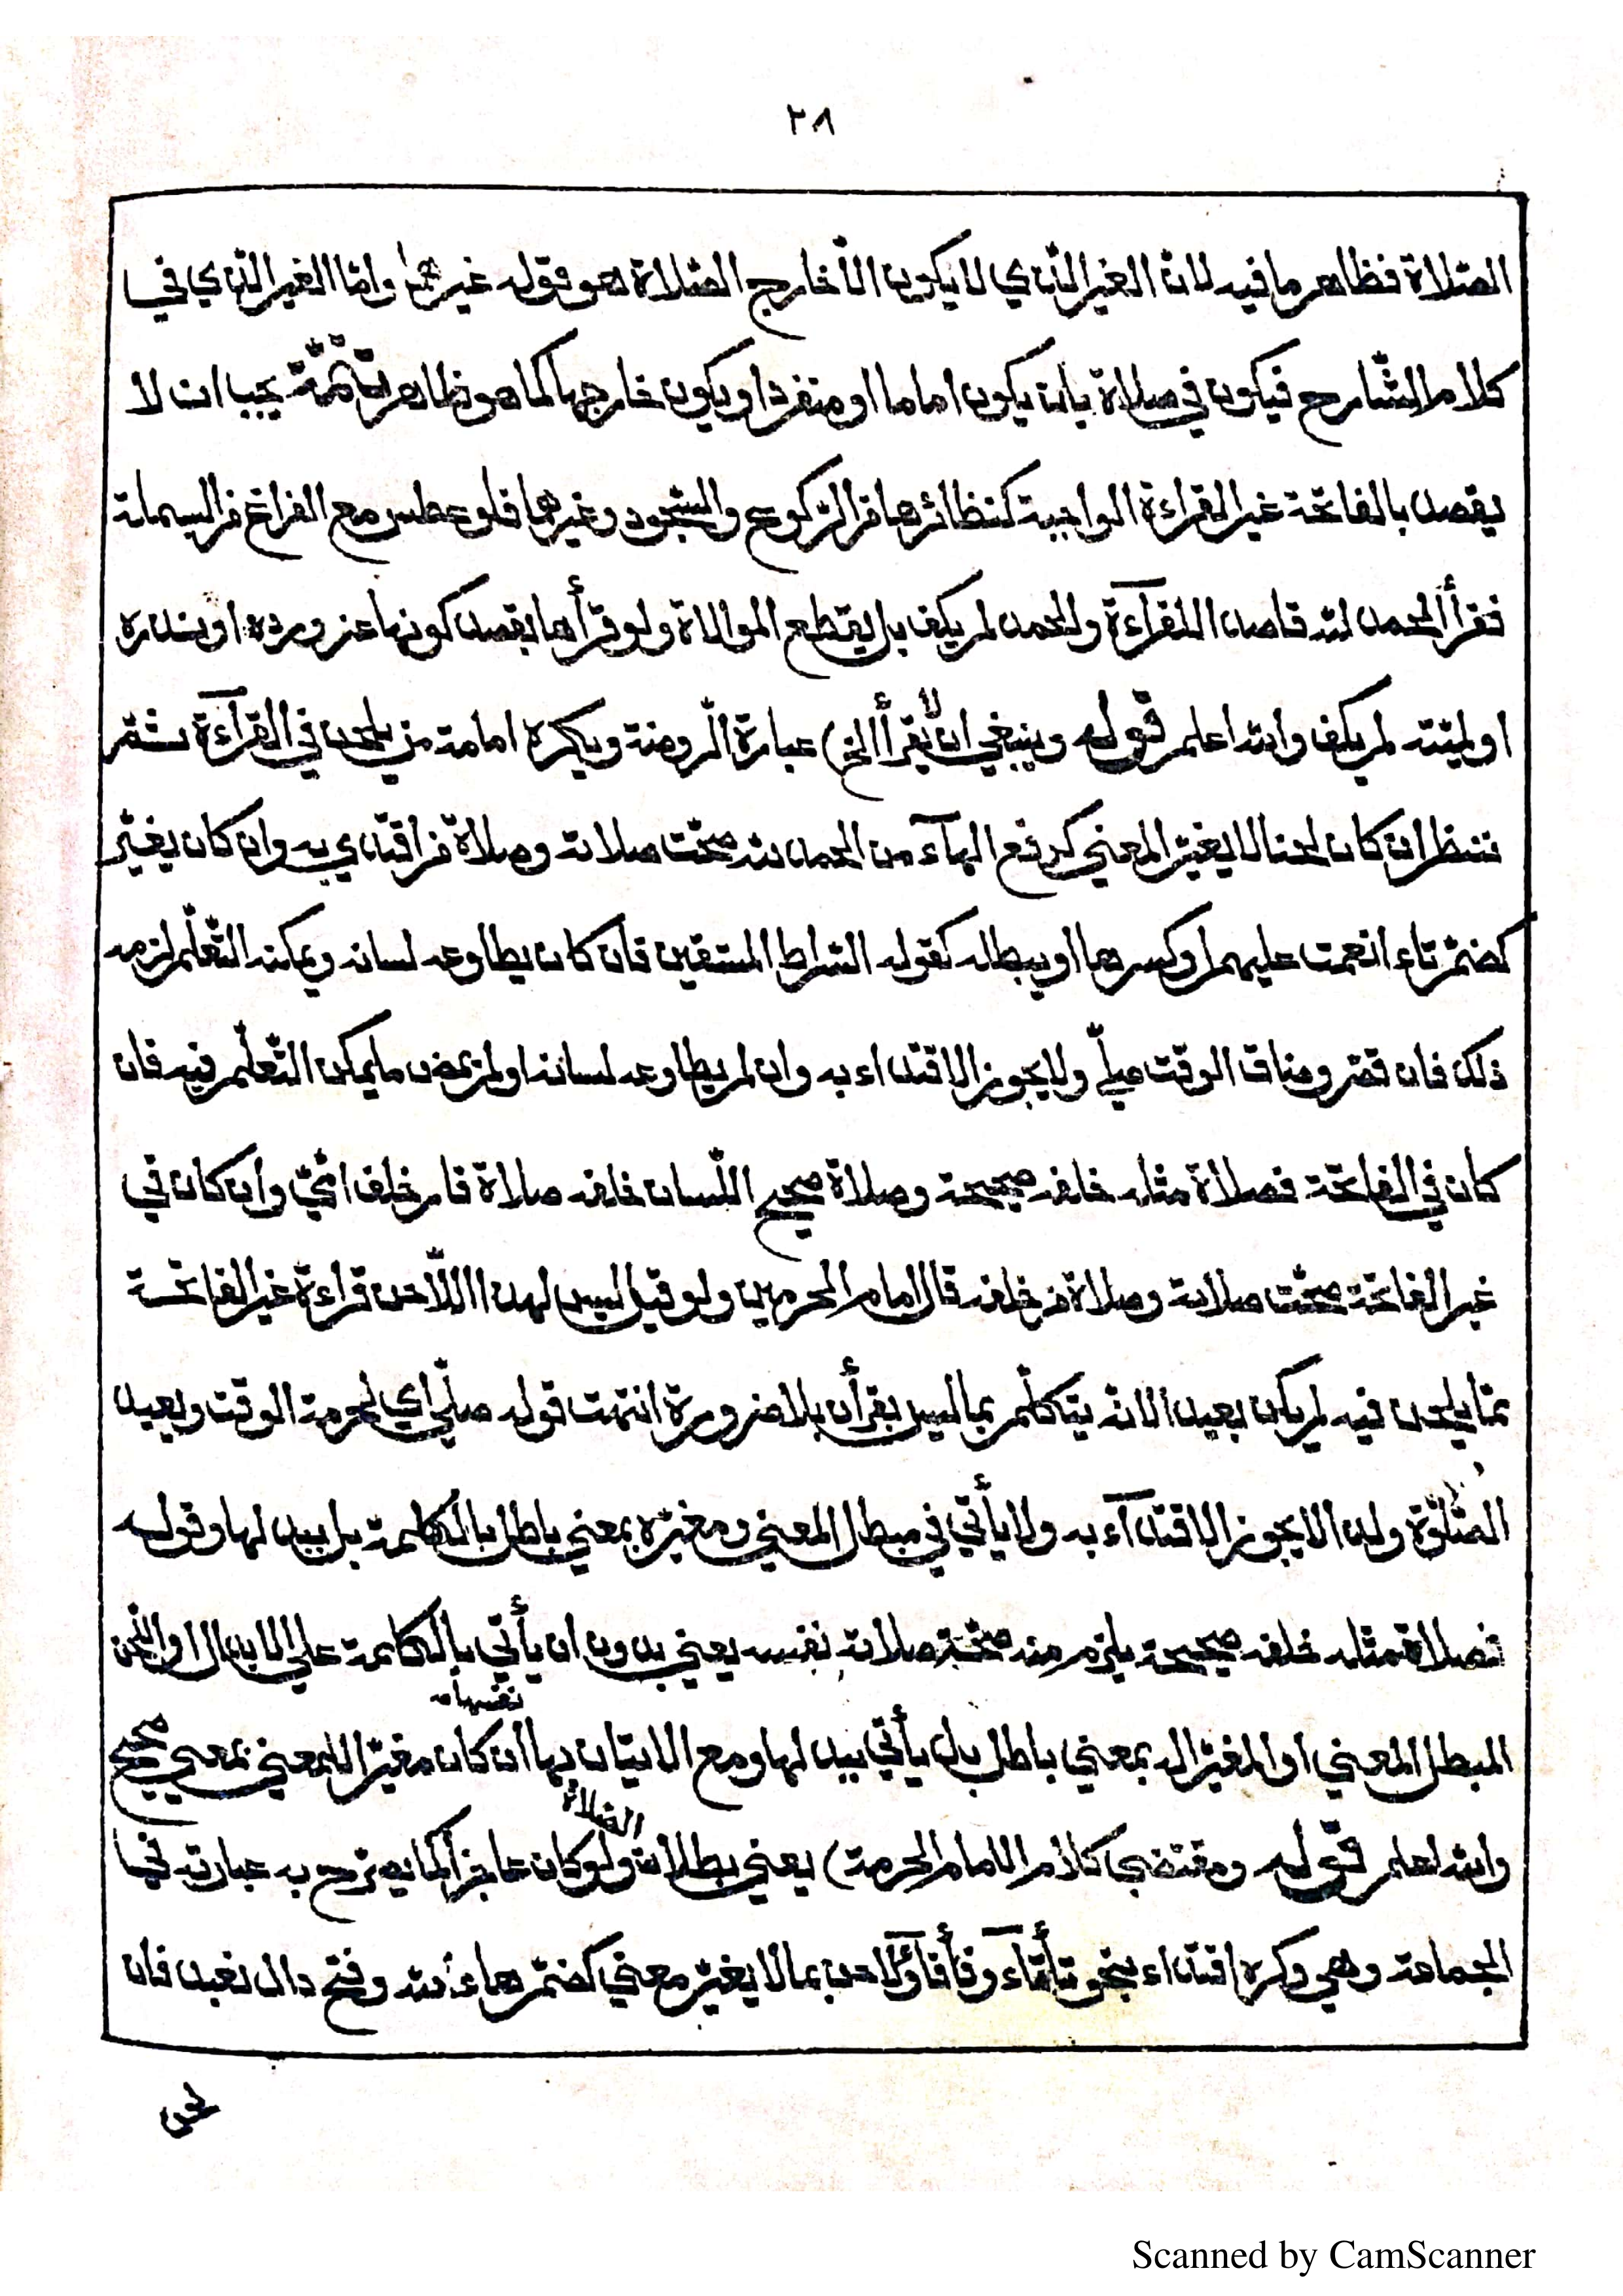 ٢٨
الصّلاة فظاهر ما فيه لانّ الغير الّذي لا يكون الّا خارج الصّلاة هو قوله غيرهما وامّا الغير الّذي في
كلام الشّارح فيكون في صلاة بان يكون اماما او منفردا ويكون خارجها كما هو ظاهر تتمّة يجب ان لا
يقصد بالفاتحة غير القراءة الواجبة كنظائرها من الرّكوع والسّجود وغيرها فلو عطس مع الفراغ من البسملة
فقرأ الحمد لله قاصدا للقرآءة والحمد لم يكف بل يقطع الموالاة ولو قرأها بقصد كونها عن ورده او نذره
او لميّته لم يكف والله اعلم قوله وينبغي ان لا يقرأ الخ) عبارة الرّوضة ويكره امامة من يلحن في القرآءة ثم
ننظر ان كان لحنا لا يغيّر المعني كرفع الهآء من الحمد لله صحّت صلاته وصلاة من اقتدي به وان كان يغيّر
كضمّ تاء انعمت عليهم او كسرها او يبطله كقوله الشراط المستقين فان كان يطاوعه لسانه ويمكنه التّعلّم لزمه
ذلك فان قصّر وضاق الوقت صلّي ولا يجوز الاقتداء به وان لم يطاوعه لسانه او لم يمض ما يمكن التّعلّم فيه فان
كان في الفاتحة فصلاة مثله خلفه صحيحة وصلاة صحيح اللّسان خلفه صلاة قار خلف امّيّ وان كان في
غير الفاتحة صحّت صلاته وصلاة من خلفه قال امام الحرمين ولو قيل ليس لهذا اللّاحن قراءة غير الفاتحة
ممّا يلحن فيه لم يكن بعيدا لانّه يتكلّم بما ليس بقرأن بلا ضرورة انتهت قوله صلّي اي لحرمة الوقت ويعيد
الصّلٰوة ولذا لا يجوز الاقتدآء به ولا يأتي في مبطل المعني ومغيّره بمعني باطل بالكلمة بل ببدلها وقوله
فصلاة مثله خلفه صحيحة يلزم منه صحّة صلاته نفسه يعني بدون ان يأتي بالكلمة علي الابدال او اللّحن
المبطل المعني او المغيّر له بمعني باطل بل يأتي ببدلها ومع الاتيان بها نفسها ان كان مغيّرا للمعني بمعني صحيح
والله اعلم قوله ومقتضي كلام الامام الحرمة) يعني بطلان الصّلاة ولو كان عاجزا كما يصرّح به عبارته في
الجماعة وهي وكره اقتداء بنحو تأتآء وفأفآء ولاحن بما لا يغيّر معني كضمّ هاء لله وفتح دال نعبد فان
لحن
Scanned by CamScanner